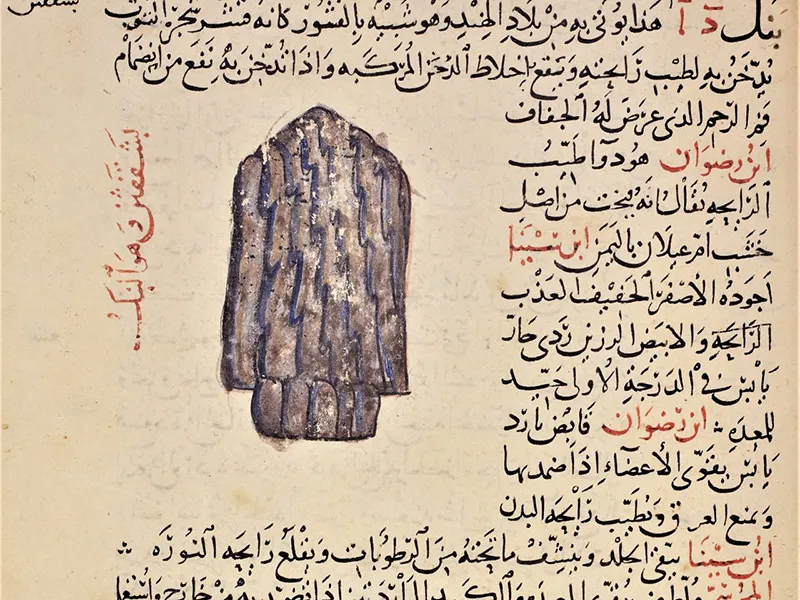 هذا يؤتى به من بلاد الهند وهو شبيه بالقشور كانه قشر شجر التوت
يدخن به لطيب رايحته ويقع باخلاط الدخن المركبه واذا تدخن به نفع من انضمام
فم الرحم الذى عرض له الجفاف
ابن رضوان هو دوا طيب
الرايحه يقال انه ينحت من اصل
خشب ام غيلان باليمن ابن سينا
اجوده الاصفر الخفيف العذب
الرايحه والابيض الرزين ردى حار
يابس فى الدرجة الاولى جيد
للمعده ابن رضوان قابض بارد
يابس يقوى الأعضاء اذا ضمد بها
ويمنع العرق ويطيب رايحه البدن
ابن سينا ينقى الجلد وينشف ما تحته من الرطوبات ويقلع رايحه النوره
وهو البنك